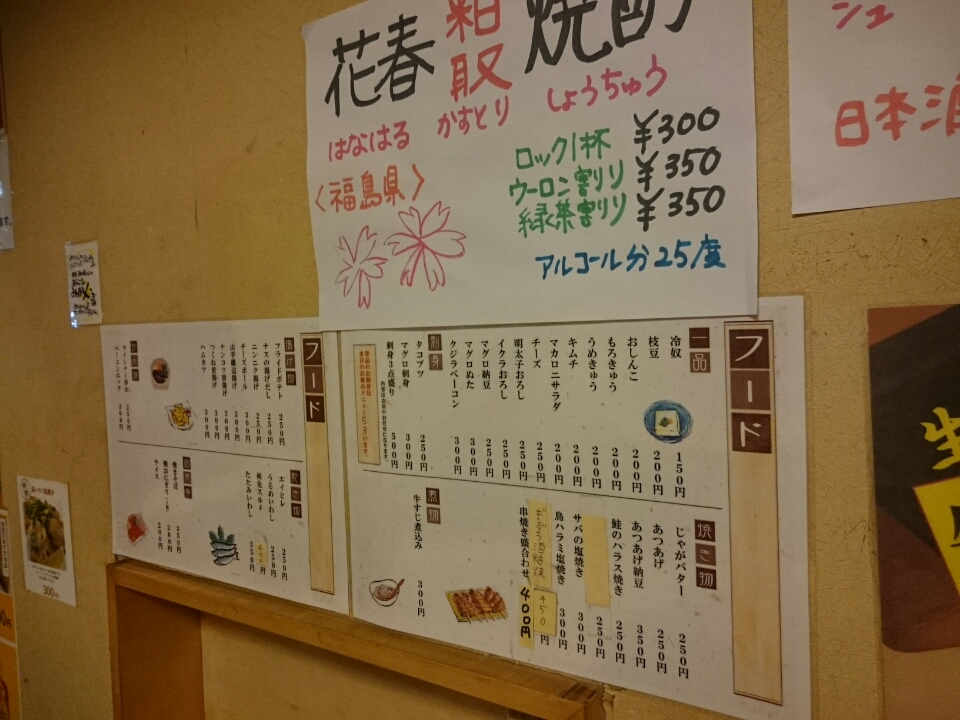 花春 粕取 焼酎
はなはる かすとり しょうちゅう
〈福島県〉
ロック1杯 ¥300
ウーロン割り ¥350
緑茶割り ¥350
アルコール分25度
日本酒
フード
一品
冷奴 150円
枝豆 200円
おしんこ 200円
もろきゅう 200円
うめきゅう 200円
キムチ 200円
マカロニサラダ 200円
チーズ 250円
明太子おろし 250円
イクラおろし 250円
マグロ納豆 250円
マグロぬた 300円
クジラベーコン 300円
刺身
タコブツ 250円
マグロ刺身 300円
刺身3点盛り 500円
焼き物
じゃがバター 250円
あつあげ 250円
あつあげ納豆 350円
鮭のハラス焼き 250円
250円
サバの塩焼き 300円
鳥ハラミ塩焼き 300円
450円
串焼き盛合わせ 400円
煮物
牛すじ煮込み 300円
フード
揚げ物
フライドポテト 250円
ナスの揚げだし 250円
ニンニク揚げ 250円
チーズボール 300円
山芋磯辺揚げ 300円
ナンコツ唐揚げ 300円
つくね唐揚げ 300円
ハムカツ 300円
乾き物
エイヒレ 250円
うるめいわし 250円
剣先スルメ
たたみいわし 350円
焼きそば 350円
焼おにぎり
ライス 200円
300円